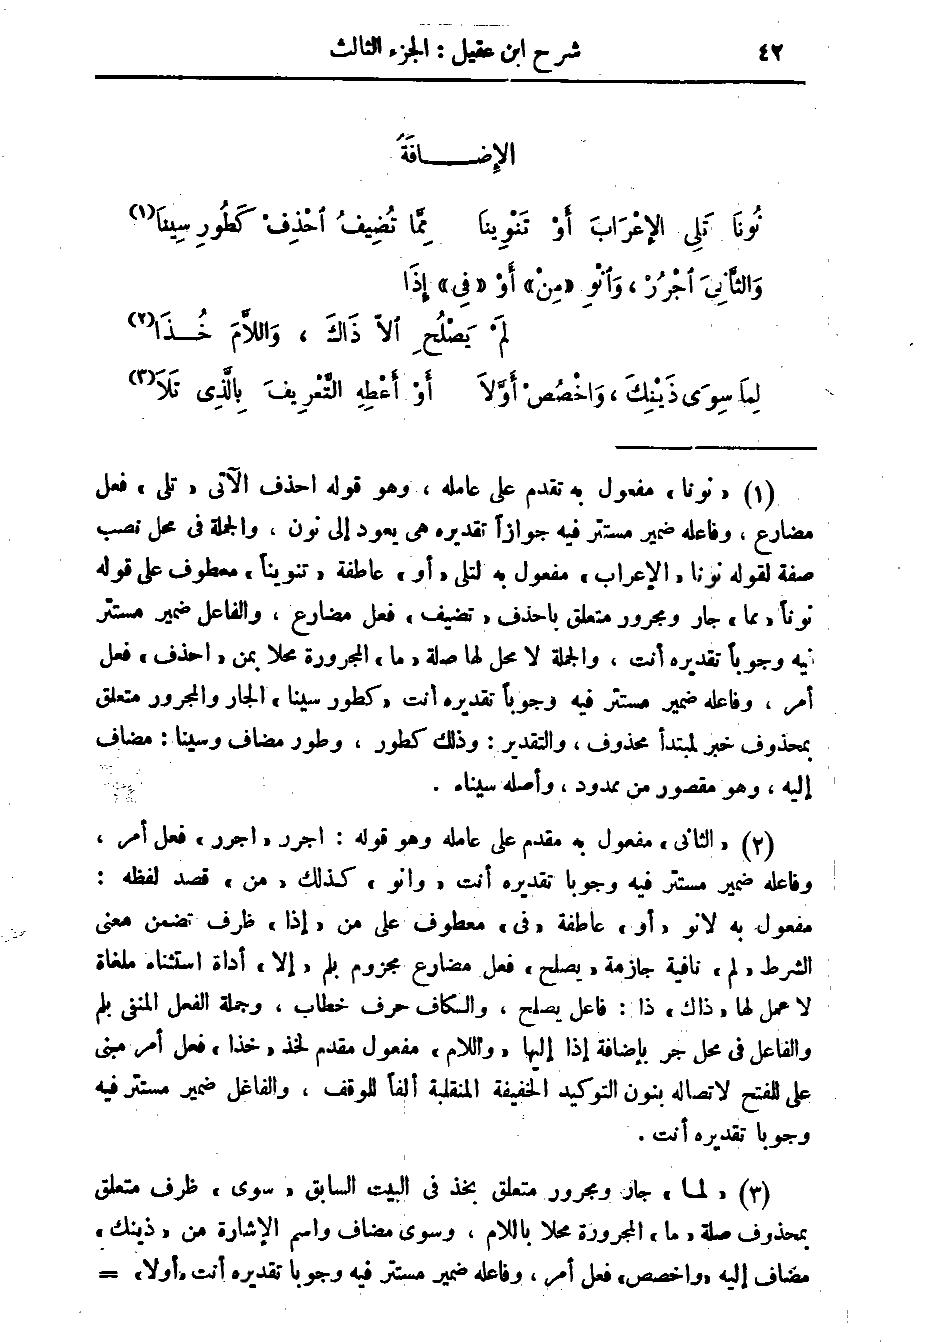 ٤٢ شرح ابن عقيل : الجزء الثالث
الإضـــافَةُ
نُونًا تَلِى الإِعْرَابَ أَوْ تَنْوِينَا مِمَّا تُضِيفُ ٱحْذِفْ كَطُورِ سِينَا(١)
وَالثَّانِىَ ٱجْرُرْ ، وَٱنْوِ «مِنْ» أَوْ «فِى» إِذَا
لَمْ يَصْلُحِ ٱلاَّ ذَاكَ ، وَاللاَّمَ خُـــذَا(٢)
لِمَا سِوَى ذَيْنِكَ ، وَاخْصُصْ أَوَّلاَ أَوْ أَعْطِهِ التَّعْرِيفَ بِالَّذِى تَلاَ(٣)
(١) « نونا » مفعول به تقدم على عامله ، وهو قوله احذف الآتى « تلى » فعل
مضارع ، وفاعله ضمير مستتر فيه جوازاً تقديره هى يعود إلى نون ، والجملة فى محل نصب
صفة لقوله نونا « الإعراب » مفعول به لتلى « أو » عاطفة « تنويناً » معطوف على قوله
نوناً « مما » جار ومجرور متعلق باحذف « تضيف » فعل مضارع ، والفاعل ضمير مستتر
فيه وجوباً تقديره أنت ، والجملة لا محل لها صلة « ما » المجرورة محلا بمن « احذف » فعل
أمر ، وفاعله ضمير مستتر فيه وجوباً تقديره أنت « كطور سينا » الجار والمجرور متعلق
بمحذوف خبر لمبتدأ محذوف ، والتقدير : وذلك كطور ، وطور مضاف وسينا : مضاف
إليه ، وهو مقصور من ممدود ، وأصله سيناء .
(٢) « الثانى » مفعول به مقدم على عامله وهو قوله : اجرر « اجرر » فعل أمر ،
وفاعله ضمير مستتر فيه وجوبا تقديره أنت « وانو » كذلك « من » قصد لفظه :
مفعول به لانو « أو » عاطفة « فى » معطوف على من « إذا » ظرف تضمن معنى
الشرط « لم » نافية جازمة « يصلح » فعل مضارع مجزوم بلم « إلا » أداة استثناء ملغاة
لا عمل لها « ذاك » ذا : فاعل يصلح ، والكاف حرف خطاب ، وجملة الفعل المنفى بلم
والفاعل فى محل جر بإضافة إذا إليها « واللام » مفعول مقدم لخذ « خذا » فعل أمر مبنى
على الفتح لاتصاله بنون التوكيد الخفيفة المنقلبة ألفاً للوقف ، والفاعل ضمير مستتر فيه
وجوبا تقديره أنت .
(٣) « لما » جار ومجرور متعلق بخذ فى البيت السابق « سوى » ظرف متعلق
بمحذوف صلة « ما » المجرورة محلا باللام ، وسوى مضاف واسم الإشارة من « ذينك »
مضاف إليه «واخصص» فعل أمر ، وفاعله ضمير مستتر فيه وجوبا تقديره أنت «أولا» =